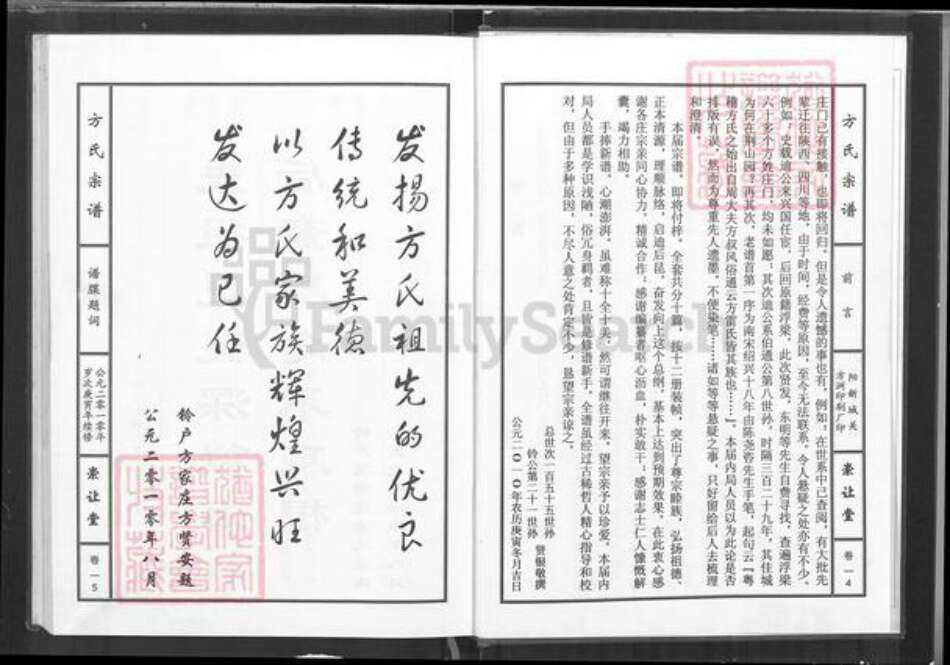 方氏宗谱
前言
阳新城关
方洲印刷厂印
崇让堂
卷一4
庄门已有接触，也即将回归。但是令人遗憾的事也有，例如：在世系中已查阅，有大批先
辈迁往陕西、四川等地，由于时间，经费等原因，至今无法联系。令人悬疑之处亦有不少，
例如，史载迪公来兴国任宦，后回原籍浮梁，此次贤发，东明等先生自费寻找，查遍浮梁
六十多个方姓庄门，均未如愿；其次迪公系伯通公第八世孙，时隔三百二十九年，其佳城
为何在荆山园？再其次，老谱首第一序为南宋绍兴十八年由陈尧咨先生手笔，起句云『粤
稽方氏之始出自周大夫方叔风俗通云方雷氏皆其族也……』。本届内局人员以为此论是否
排版有误，然而为尊重先人遗墨，不便染笔……诸如等等悬疑之事，只好留给后人去梳理
和澄清。
本届宗谱，即将付梓。全套共分十篇，按十二册装帧，突出了尊宗睦族，弘扬祖德、
正本清源，理顺脉络，启迪后昆，奋发向上这个总纲，基本上达到预期效果。在此衷心感
谢各庄宗亲同心协力，精诚合作；感谢编纂者呕心沥血，朴实敢干；感谢志士仁人慷慨解
囊，竭力相助。
手捧新谱，心潮澎湃。虽难称十全十美，然可谓继往开来。望宗亲予以珍爱。本届内
局人员都是学识浅陋，俗冗身羁者，且皆是修谱新手。全谱虽经过古稀哲人精心指导和校
对，但由于多种原因，不尽人意之处肯定不少，恳望宗亲谅之。
总世次一百五十五世孙
铃公第二十一世孙
贤银敬撰
公元二〇一〇年农历庚寅冬月吉日
发扬方氏祖先的优良
传统和美德
以方氏家族辉煌兴旺
发达为己任
铃户方家庄方贤安题
公元二零一零年八月
方氏宗谱
谱牒题词
公元二零一零年
岁次庚寅年续修
崇让堂
卷一5
FamilySearch